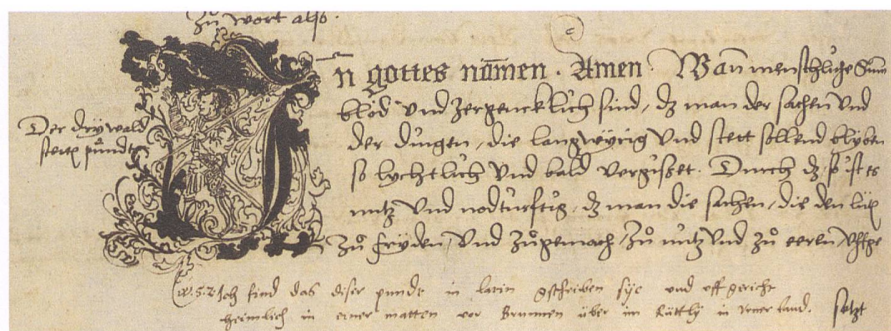 Zů wort also.
Jn gottes namen. Amen. Wann menschliche Sinn
Der dry wald
stett pundt
blöd und zergencklich sind, dz man der sachen und
der dingen, die langwyrig und stett sollend blyben
so lychtlich und bald vergisset. Durch dz so ist es
nütz und nodturfftig, dz man die sachen, die den lüten
zů fryden, und zů gemach, zů nutz und zů eeren,
Ich find das diser pundt in latin gschriben sye und uffgericht
heimlich in einer matten vor Brunnen über im Rüttly in Urner land. setzt